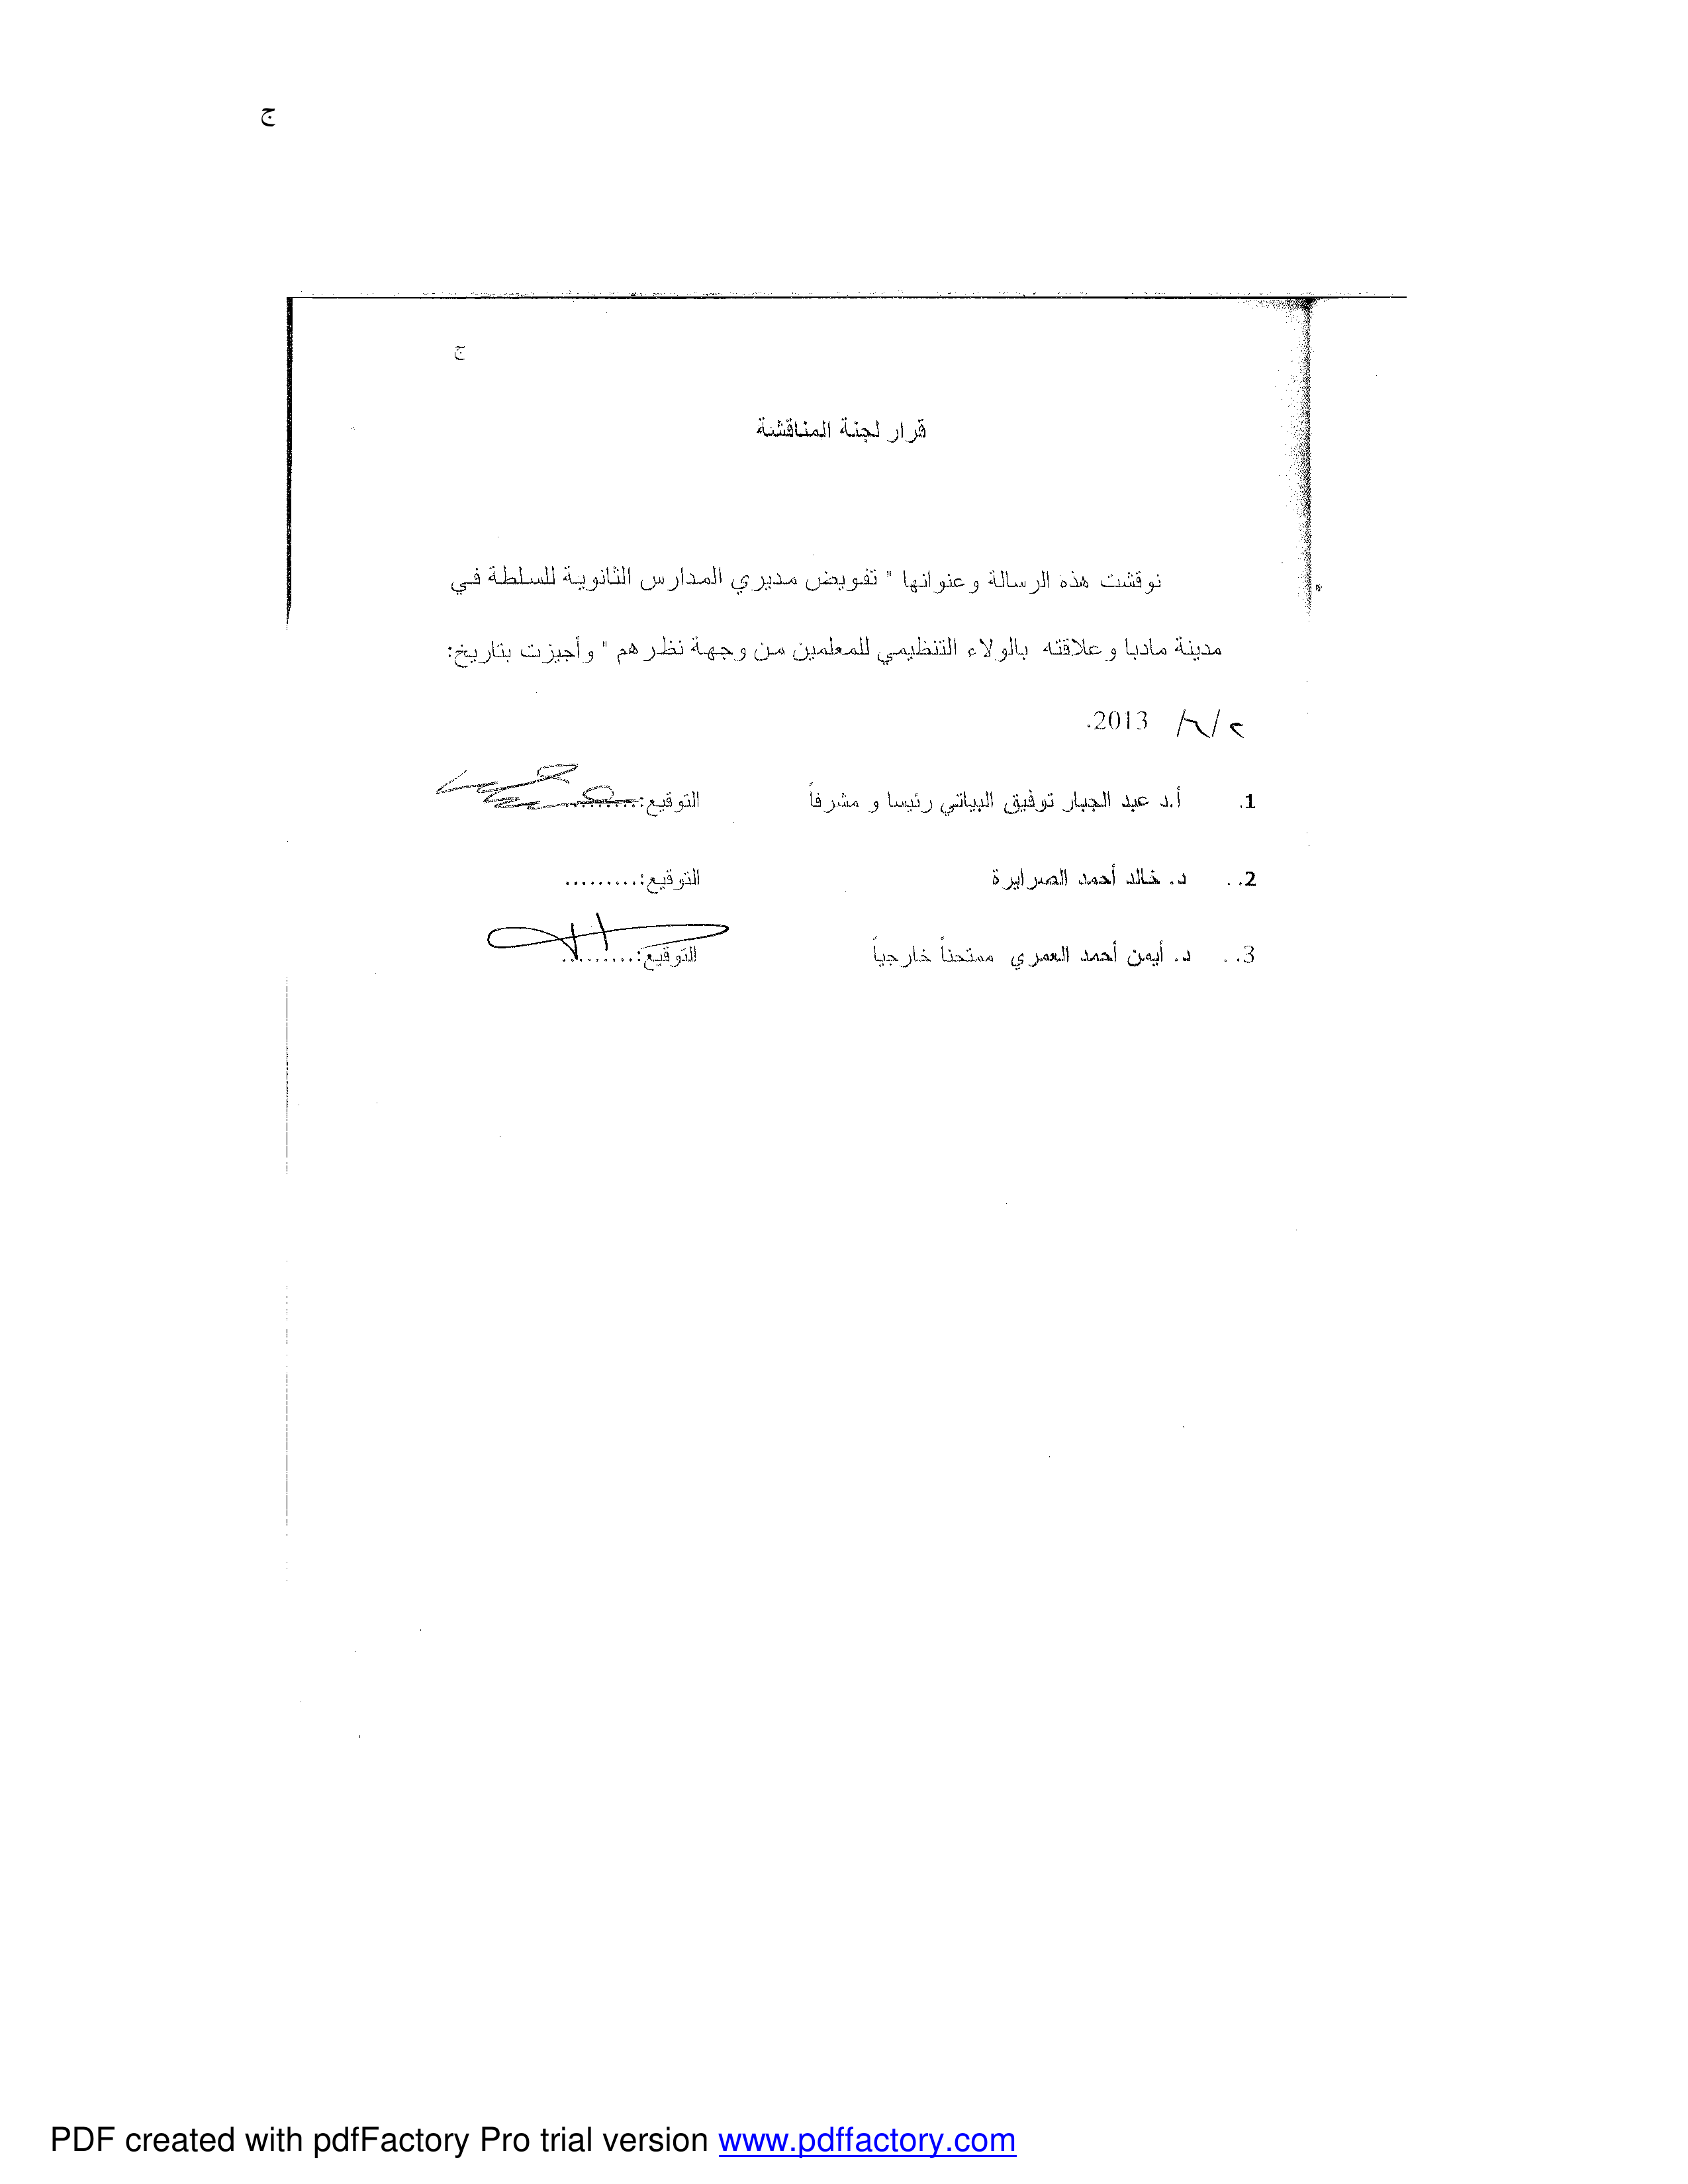 ج
ج
قرار لجنة المناقشة
نوقشت هذه الرسالة وعنوانها " تفويض مديري المدارس الثانوية للسلطة في
مدينة مادبا وعلاقته بالولاء التنظيمي للمعلمين من وجهة نظرهم " وأجيزت بتاريخ:
/٦/ 2013.
1. أ.د عبد الجبار توفيق البياتي رئيسا و مشرفاً التوقيع:.........
2. . د. خالد أحمد الصرايرة التوقيع:.........
3. . د. أيمن أحمد العمري ممتحناً خارجياً التوقيع:.........
PDF created with pdfFactory Pro trial version www.pdffactory.com